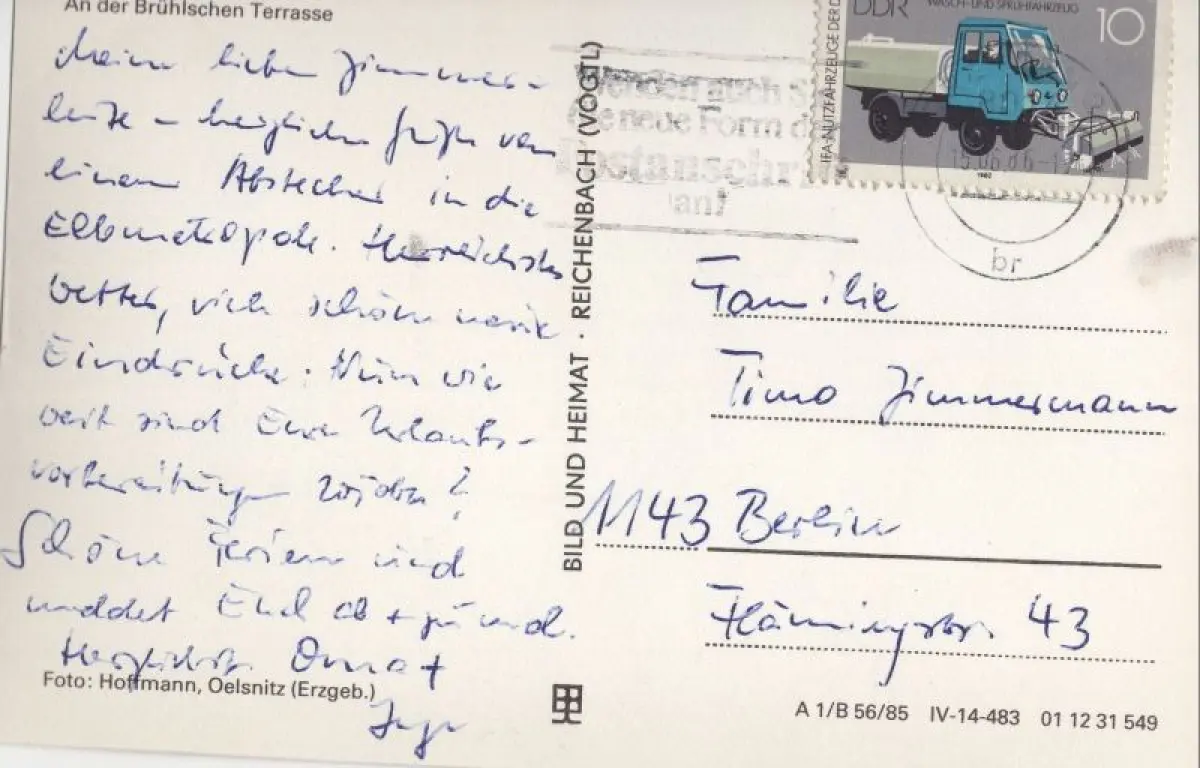 An der Brühlschen Terrasse
Meine lieben Zimmers-
leute – herzliche Grüße von
einem Abstecher in die
Elbmetropole. Herrlichstes
Wetter, viele schöne neue
Eindrücke. Nun wie
weit sind Eure Urlaubs-
vorbereitungen ?
Schöne Ferien und
meldet Euch ab + zu mal.
Herzlichst Oma +
Foto: Hoffmann, Oelsnitz (Erzgeb.)
BILD UND HEIMAT · REICHENBACH (VOGTL)
DDR
WASCH- UND SPRÜHFAHRZEUG
10
IFA-NUTZFAHRZEUGE DER D
1982
auch S
neue Form d
an!
br
Familie
Timo Zimmermann
1143 Berlin
Flämingstr. 43
A 1/B 56/85 IV-14-483 01 12 31 549